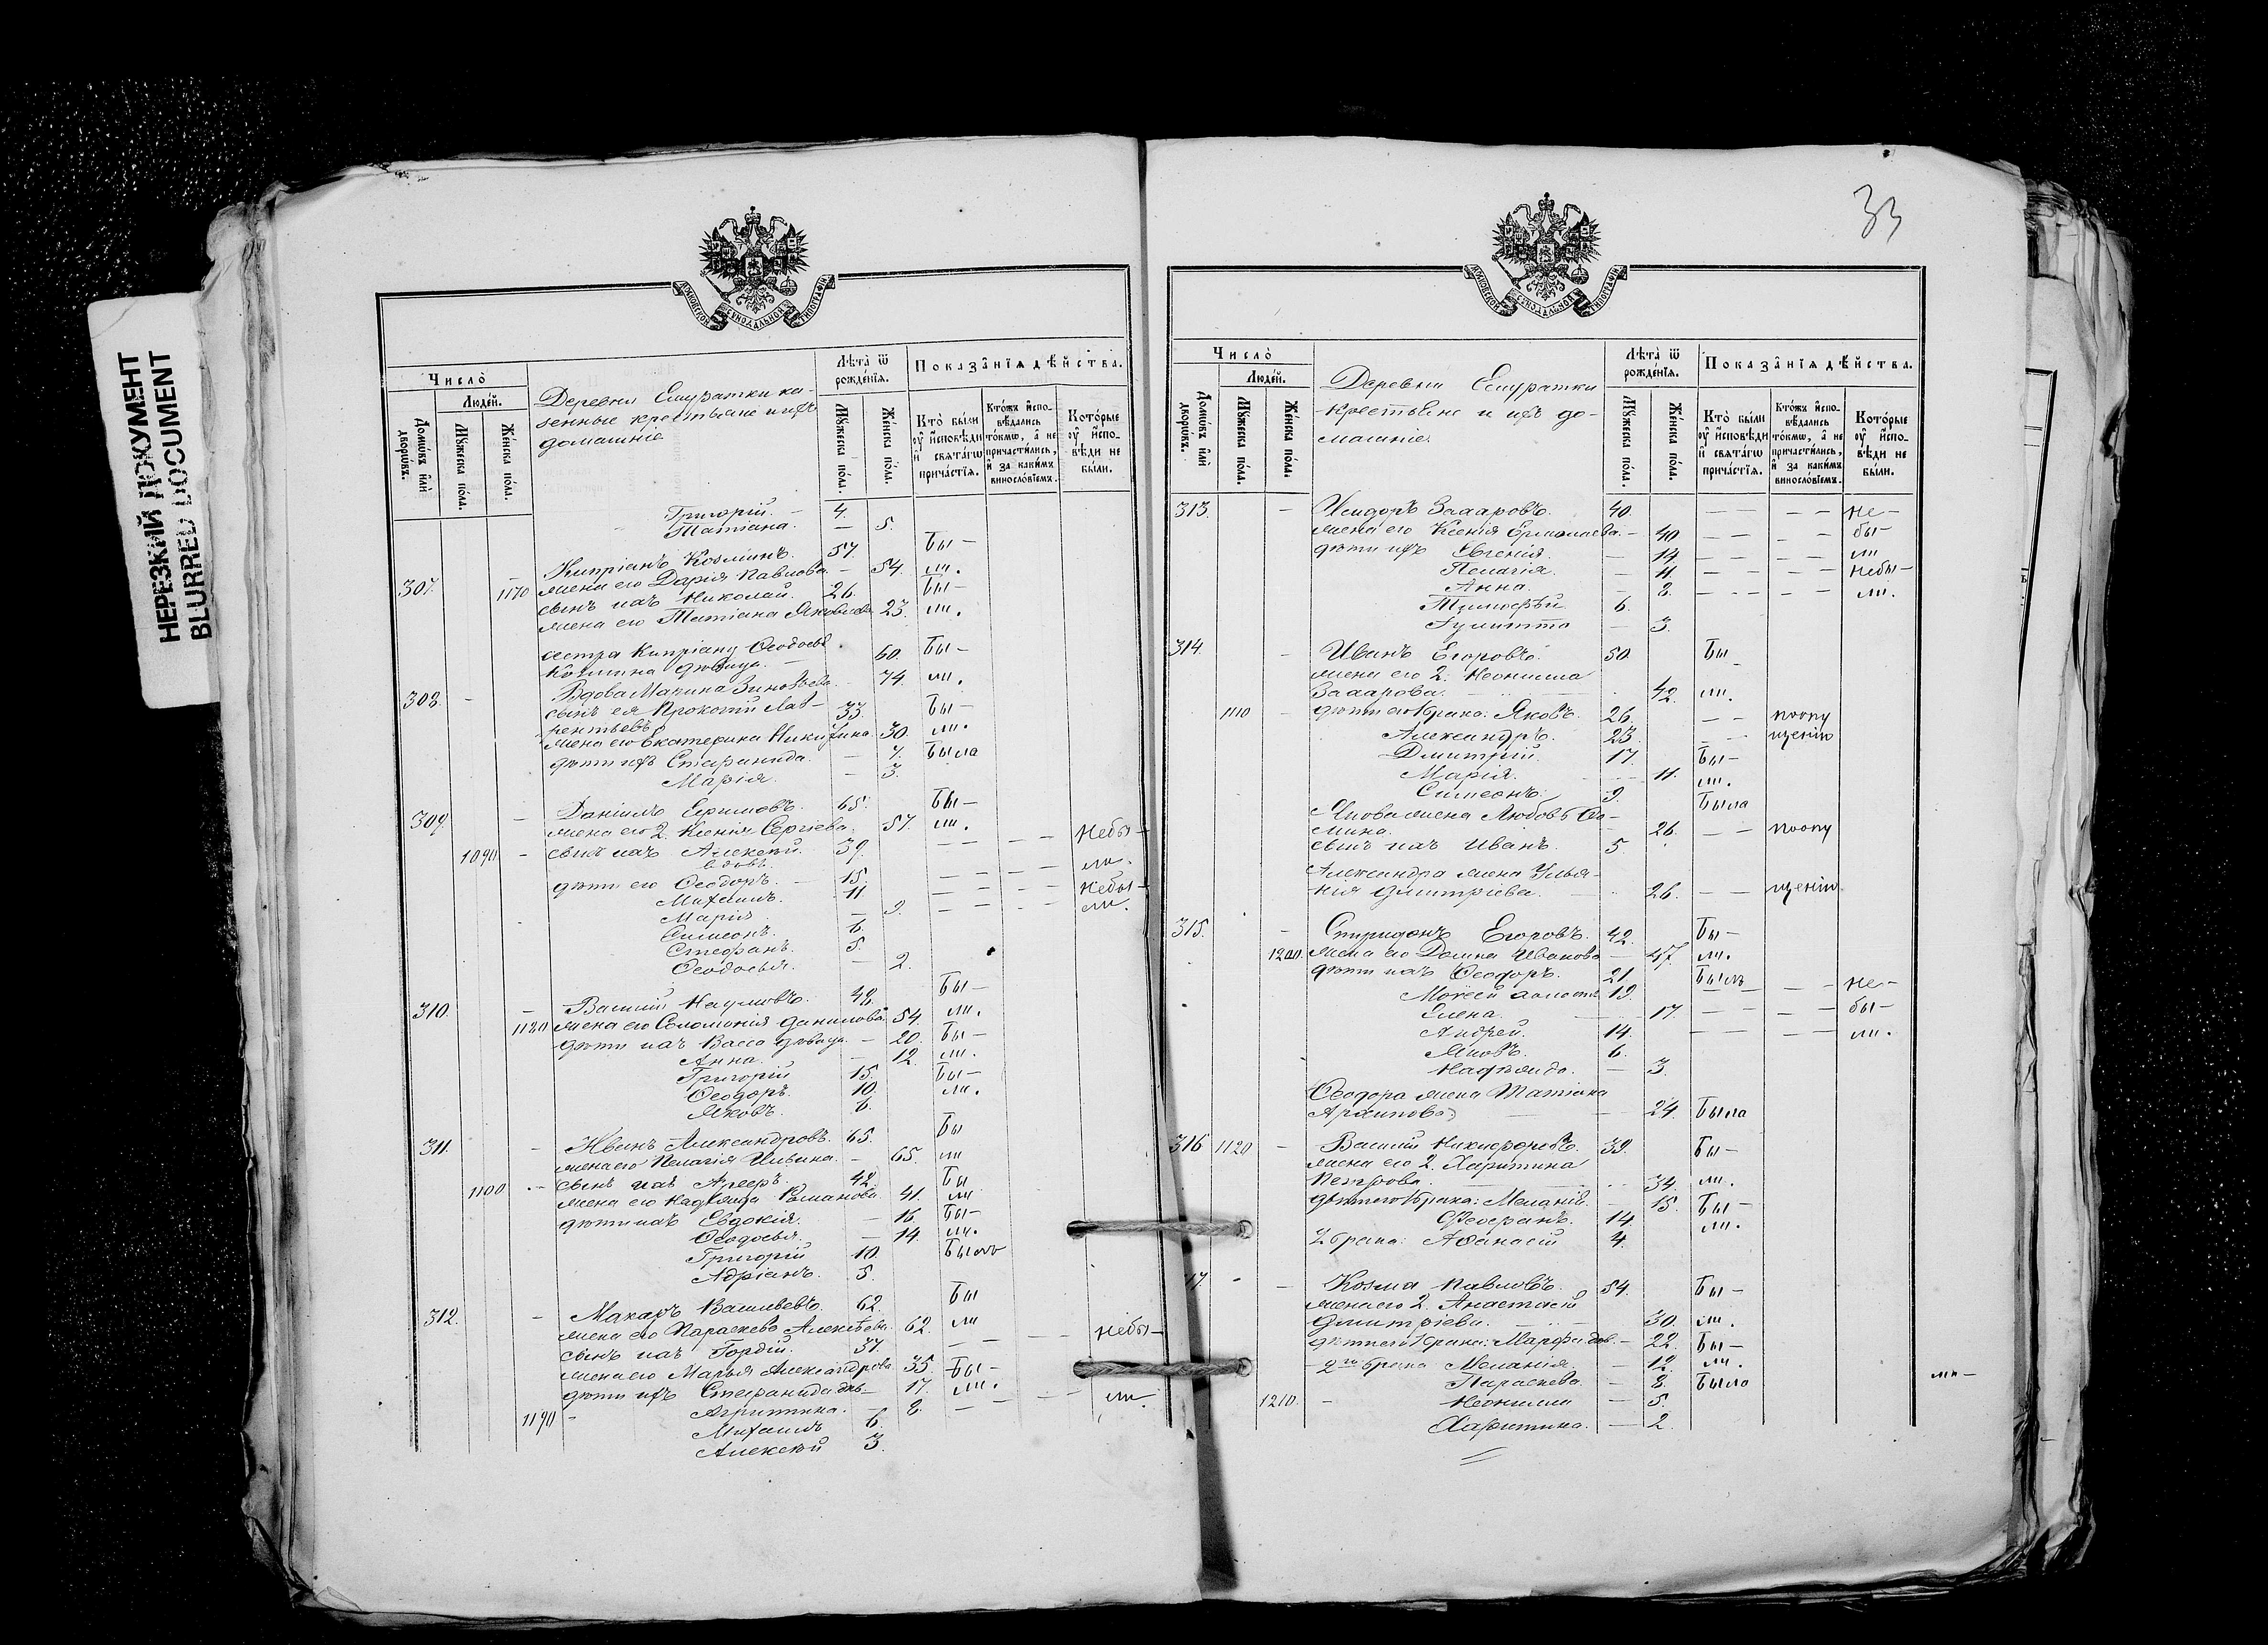 НЕРЕЗКИЙ ДОКУМЕНТ
BLURRED DOCUMENT
МОСКОВСКОЙ СѴНОДАЛЬНОЙ ТИПОГРАФІИ
Число̀
Людей.
Домѡвъ и҆лѝ дворѡвъ.
Мꙋжеска пола.
Женска пола.
Деревни Емуратки ка-
зенные крестьяне и ихъ
домашніе
Лѣта̀ ѿ рожденїѧ.
Мꙋжеска пола.
Женска пола.
Показа̂нїѧ дѣйства.
Кто̀ были оу҆ и҆сповѣди и҆ свѧтагѡ причастїѧ.
Ктожъ и҆спо-вѣдались токмѡ, а҆ не причастились, и҆ за какимъ винословїемъ.
Которые оу҆ и҆спо-вѣди не были.
Григорій. — 4.
Татіана. — 5.
307. Кипріанъ Козминъ. 57. Бы —
1170 жена его Дарія Павлова. — 54. ли.
сынъ ихъ Николай. 26. Бы —
жена его Татіана Яковлева 23. ли.
сестра Кипріану Ѳеодосья
Козмина дѣвица. — 60. Бы —
308. — Вдова Марина Зиновьева. — 74. ли.
сынъ ея Прокопій Лав-
рентьевъ 33. Бы —
жена его Екатерина Никитина 30. ли.
дѣти ихъ Стефанида. — 7. Была
Марія. — 3.
309. — Даніилъ Ефимовъ. 65. Бы —
жена его 2. Ксенія Сергіева. 57. ли.
1090 — сынъ ихъ Алексѣй. 39. — — — — Небы —
вдовъ
дѣти его Ѳеодоръ. — 15. — — — — ли.
Михаилъ. 11. — — — — Небы —
Марія — 9. — — — — ли.
Симеонъ. 6.
Стефанъ. 5.
Ѳеодосья. — 2.
310. — Василій Наумовъ. 49. Бы —
1180 жена его Соломонія Данилова 54. ли.
дѣти ихъ Васса дѣвица — 20. Бы —
Анна. — 12. ли.
Григорій 15. Бы —
Ѳеодоръ. 10. ли.
Яковъ. 6.
311. — Иванъ Александровъ. 65. Бы
жена его Пелагія Ильина. — 65. ли
1100 — сынъ ихъ 42. Бы
жена его Надежда Романова. 41. ли
дѣти ихъ Евдокія. — 16 Бы —
Ѳеодосья. — 14. ли.
Григорій 10. Былъ
Адріанъ. 5.
312. — Макаръ Васильевъ. 62. Бы
жена его Параскева Алексѣева. 62. ли
сынъ ихъ Гордій. 37. — — — Небы —
жена его Марья Александрова 35 Бы —
дѣти ихъ Стефанида дѣв — 17. ли.
1190 — Агриппина. — 8. — — — — ли.
Михаилъ 6.
Алексѣй 3.
33
Число̀
Людей.
Домѡвъ и҆лѝ дворѡвъ.
Мꙋжеска пола.
Женска пола.
Деревни Емуратки
крестьяне и ихъ до-
машніе.
Лѣта̀ ѿ рожденїѧ.
Мꙋжеска пола.
Женска пола.
Показа̂нїѧ дѣйства.
Кто̀ были оу҆ и҆сповѣди и҆ свѧтагѡ причастїѧ.
Ктожъ и҆спо-вѣдались токмѡ, а҆ не причастились, и҆ за какимъ винословїемъ.
Которые оу҆ и҆спо-вѣди не были.
313. — Исидоръ Захаровъ. 40. — — — — Не —
жена его Ксенія Ермолаева. — 40 — — — бы —
дѣти ихъ Евгенія. — 14. — — — — ли
Пелагія. — 11. — — — — Небы —
Анна. — 8. — — — — ли.
Тимофѣй 6.
Іулитта — 3.
314. — Иванъ Егоровъ. 50. Бы
жена его 2. Неонилла
Захарова. 42. ли.
1110 — дѣти 1 брака: Яковъ. 26. — — поопу
Александръ. 23. — — щенію
Дмитрій. 17. Бы —
Марія. — 11. ли.
Симеонъ. 9. Была
Якова жена Любовь Ѳо-
мина. 26. — — поопу
сынъ ихъ Иванъ. 5.
Александра жена Улья-
нія Дмитріева. 26. — — щенію
315. — Спиридонъ Егоровъ. 42. Бы —
1200. жена его Домна Иванова — 47. ли.
дѣти ихъ Ѳеодоръ. 21. Былъ
Моѵсей холостъ 19. — — — — Не —
Елена. — 17. — — — — бы —
Андрей. 14. — — — — ли.
Яковъ. 6.
Надежда. — 3.
Ѳеодора жена Татіана
Архипова. — 24. Была
316 1120 — Василій Никифоровъ. 39. Бы —
жена его 2. Харитина
Петрова. 34. ли.
дѣти 1 брака: Меланія. — 15. Бы —
Феофанъ. 14. ли.
2 брака: Аѳанасій 4.
17. — Козма Павловъ. 54. Бы —
жена его 2. Анастасія
Дмитріева. 30. ли.
дѣти 1 брака: Марфа дѣв. — 22. Бы —
2го брака Меланія. — 12. ли.
Параскева. — 8. Была
1210. — Неонилла — 5.
Харитина. — 2.
ли —